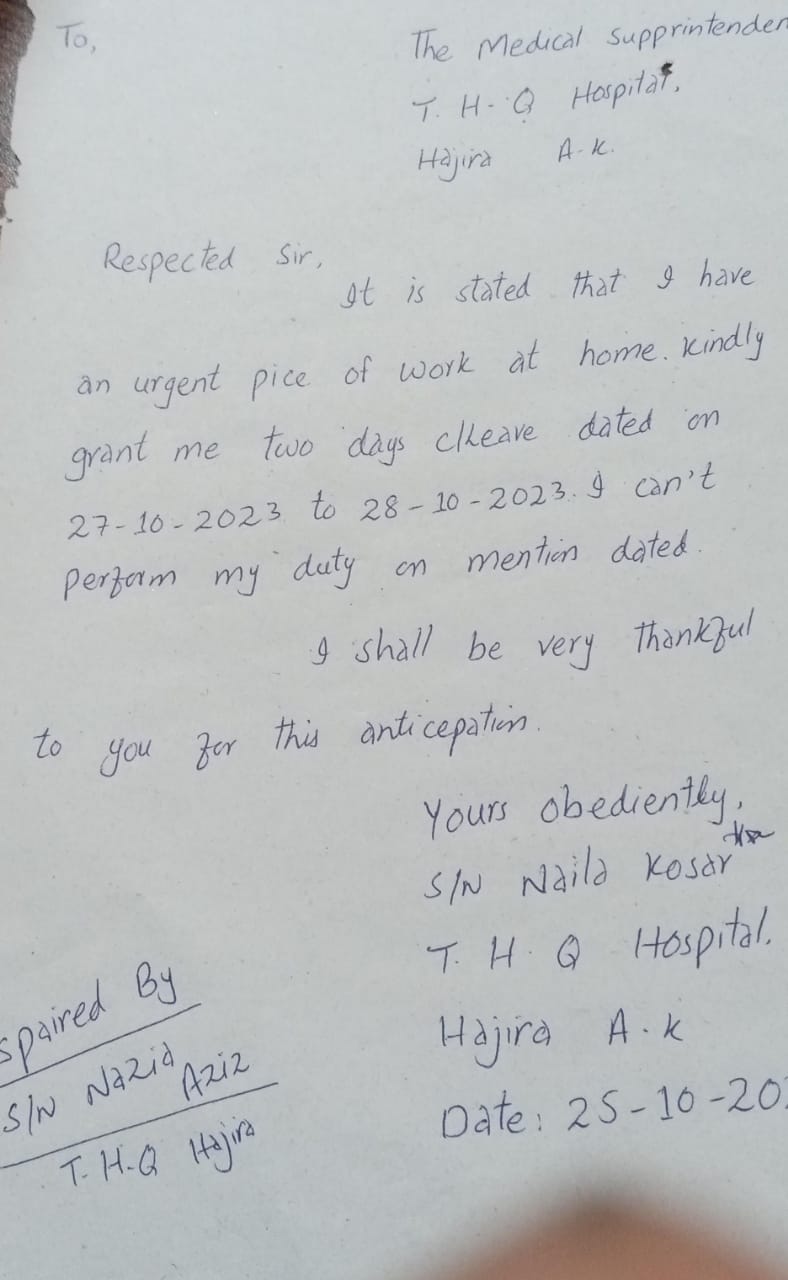 To,
The Medical Supprintenden
T. H-Q Hospital,
Hajira A-K.
Respected Sir,
It is stated that I have
an urgent pice of work at home. Kindly
grant me two days c/leave dated on
27-10-2023 to 28-10-2023. I can't
Perform my duty on mention dated.
I shall be very thankful
to you for this anticepation.
Yours obediently,
S/N Naila Kosar
T. H. Q Hospital.
Hajira A.K
Date: 25-10-202
spaired By
S/N Nazia Aziz
T.H.Q Hajira